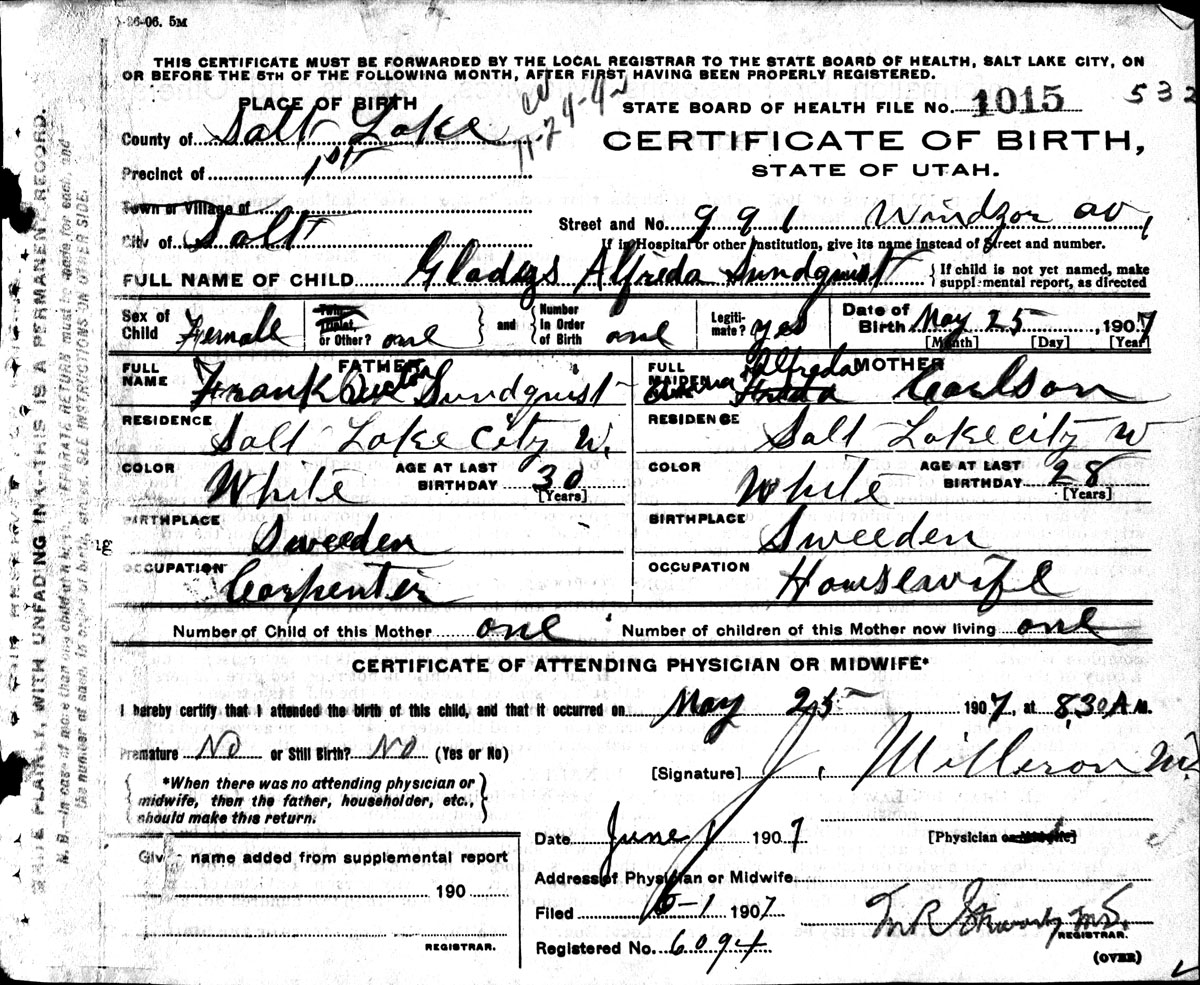 -26-06. 5M
THIS CERTIFICATE MUST BE FORWARDED BY THE LOCAL REGISTRAR TO THE STATE BOARD OF HEALTH, SALT LAKE CITY, ON
OR BEFORE THE 5TH OF THE FOLLOWING MONTH, AFTER FIRST HAVING BEEN PROPERLY REGISTERED.
532
PLACE OF BIRTH
STATE BOARD OF HEALTH FILE NO. 1015
County of Salt Lake
CERTIFICATE OF BIRTH,
Precinct of 1st
STATE OF UTAH.
Town or Village of
Street and No. 991 Windzor av,
City of Salt
If in Hospital or other Institution, give its name instead of Street and number.
FULL NAME OF CHILD Gladys Alfreda Sundquist
If child is not yet named, make
supplemental report, as directed
Sex of Child Female
Twin, Triplet, or Other? one
and
Number In Order of Birth one
Legiti-mate? yes
Date of Birth May 25, 1907
[Month] [Day] [Year]
FATHER
FULL NAME Frank Sundquist
MOTHER
FULL MAIDEN Alfreda Carlson
RESIDENCE Salt Lake City W.
RESIDENCE Salt Lake city W
COLOR White AGE AT LAST BIRTHDAY 30 [Years]
COLOR White AGE AT LAST BIRTHDAY 28 [Years]
BIRTHPLACE Sweeden
BIRTHPLACE Sweeden
OCCUPATION Carpenter
OCCUPATION Housewife
Number of Child of this Mother one Number of children of this Mother now living one
CERTIFICATE OF ATTENDING PHYSICIAN OR MIDWIFE*
I hereby certify that I attended the birth of this child, and that it occurred on May 25 1907, at 8.30 A M.
Premature No or Still Birth? No (Yes or No)
[Signature] J. Milleron M.
*When there was no attending physician or
midwife, then the father, householder, etc.,
should make this return.
Date June 1 1907
[Physician or Midwife]
Given name added from supplemental report
190
REGISTRAR.
Address of Physician or Midwife
Filed 6-1 1907
REGISTRAR.
Registered No. 6094
(OVER)
WRITE PLAINLY, WITH UNFADING INK—THIS IS A PERMANENT RECORD.
N. B.—In case of more than one child at a birth, a SEPARATE RETURN must be made for each, and
the number of each, in order of birth, stated. SEE INSTRUCTIONS ON OTHER SIDE.